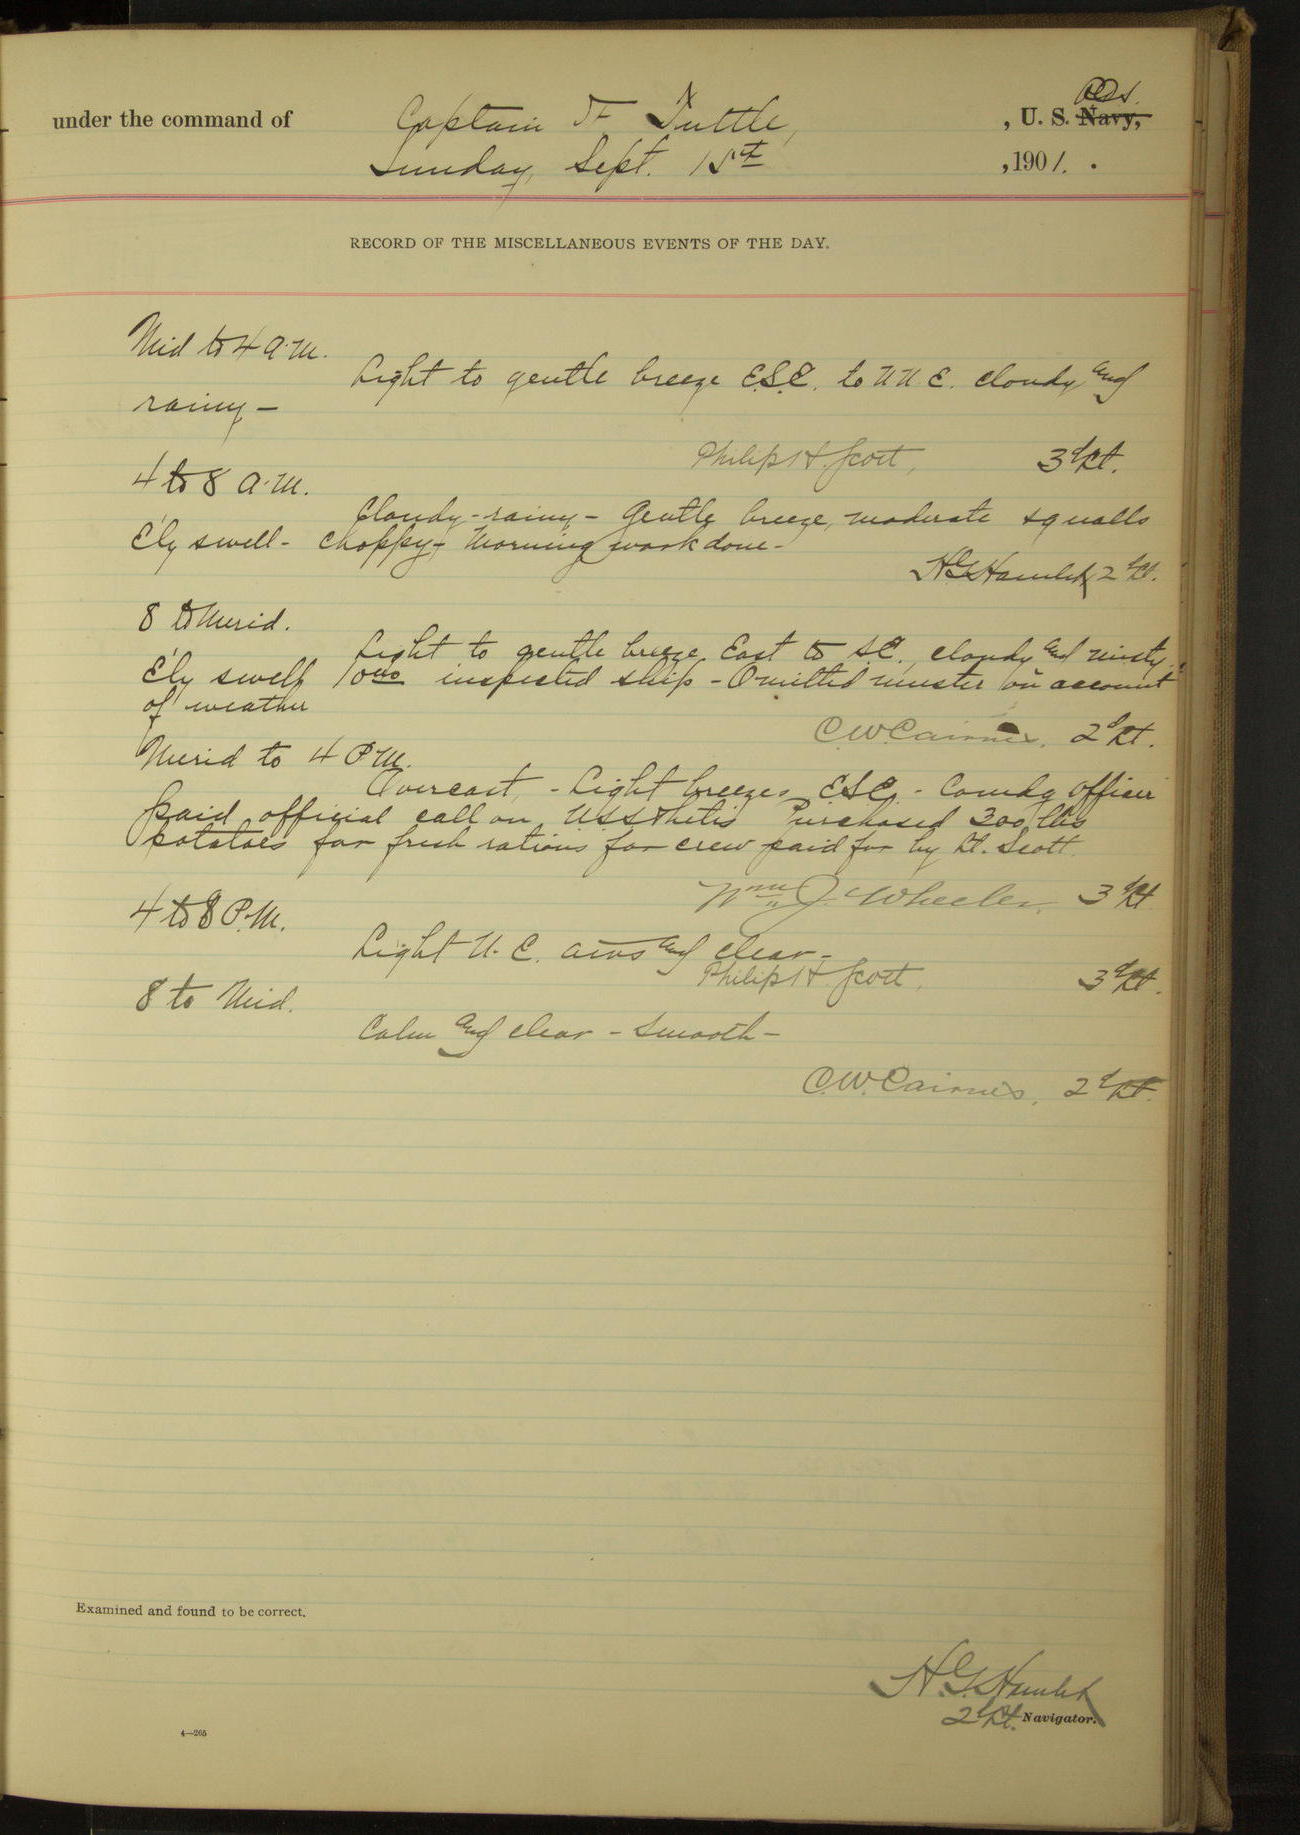 under the command of Captain F Tuttle, , U. S. Navy,
Sunday, Sept. 15th ,1901.
RECORD OF THE MISCELLANEOUS EVENTS OF THE DAY.
Mid to 4 a.m.
Light to gentle breeze E.S.E. to N N E. cloudy and
rainy —
Philip H. Scott, 3d Lt.
4 to 8 a.m.
Cloudy - rainy - Gentle breeze, moderate squalls
E'ly swell - choppy - Morning work done -
H G Hamlet 2d Lt.
8 to Merid.
Light to gentle breeze East to S.E., cloudy and misty.
E'ly swell inspected ship - Omitted muster on account
of weather
C. W. Cairnes, 2d Lt.
Merid to 4 P.M.
Overcast, - Light breezes E.S.E. - Comdg Officer
paid official call on USS Thetis Purchased 300 lbs
potatoes for fresh rations for crew paid for by Lt. Scott.
Wm J. Wheeler, 3d Lt
4 to 8 P.M.
Light N. E. airs and clear -
Philip H. Scott, 3d Lt.
8 to Mid.
Calm and clear - Smooth -
C. W. Cairnes, 2d Lt.
Examined and found to be correct.
H. G. Hamlet
2d Lt. Navigator.
4—265